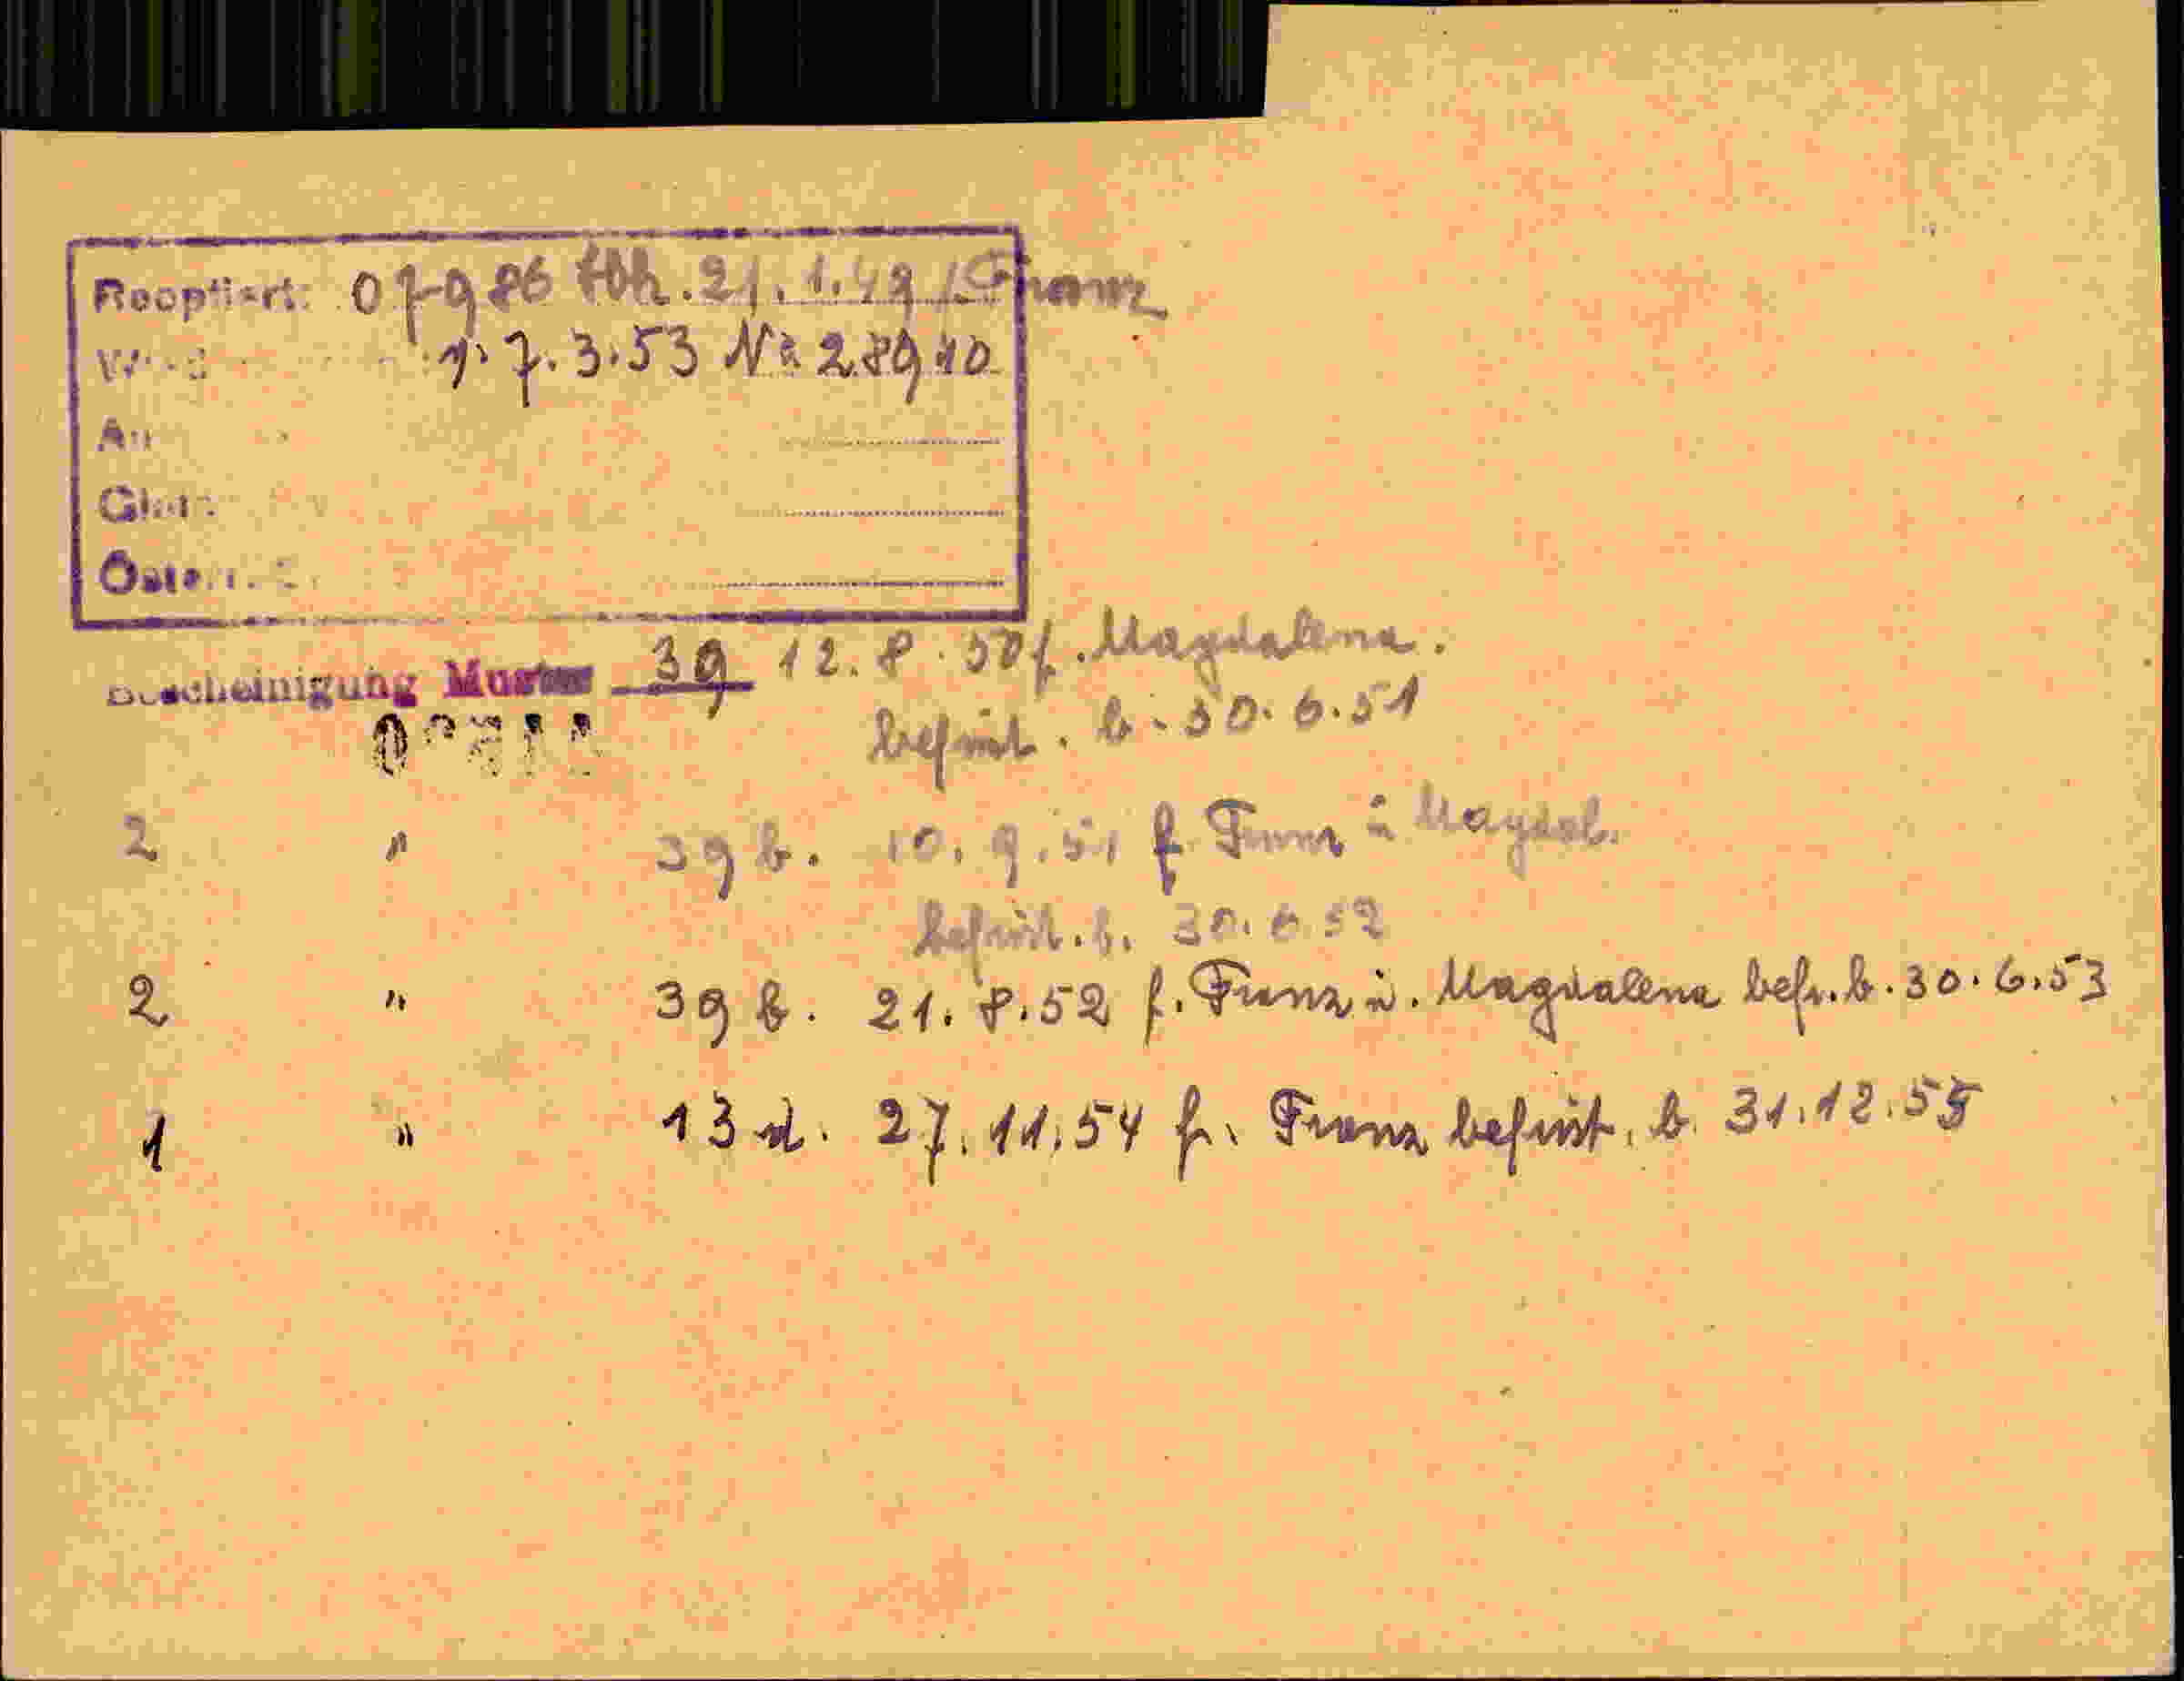 Reoptiert: 07986 tbh. 21.1.49 / Franz
v. 7.3.53 No 28910
Bescheinigung Muster 39 12.8.50 f. Magdalena.
befrist. b. 30.6.51
2 " 39 b. 10.9.51 f. Franz u Magdal.
befrist. b. 30.6.52
2 " 39 b. 21.8.52 f. Franz u. Magdalena befr. b. 30.6.53
1 " 13 d. 27.11.54 f. Franz befrist. b. 31.12.55